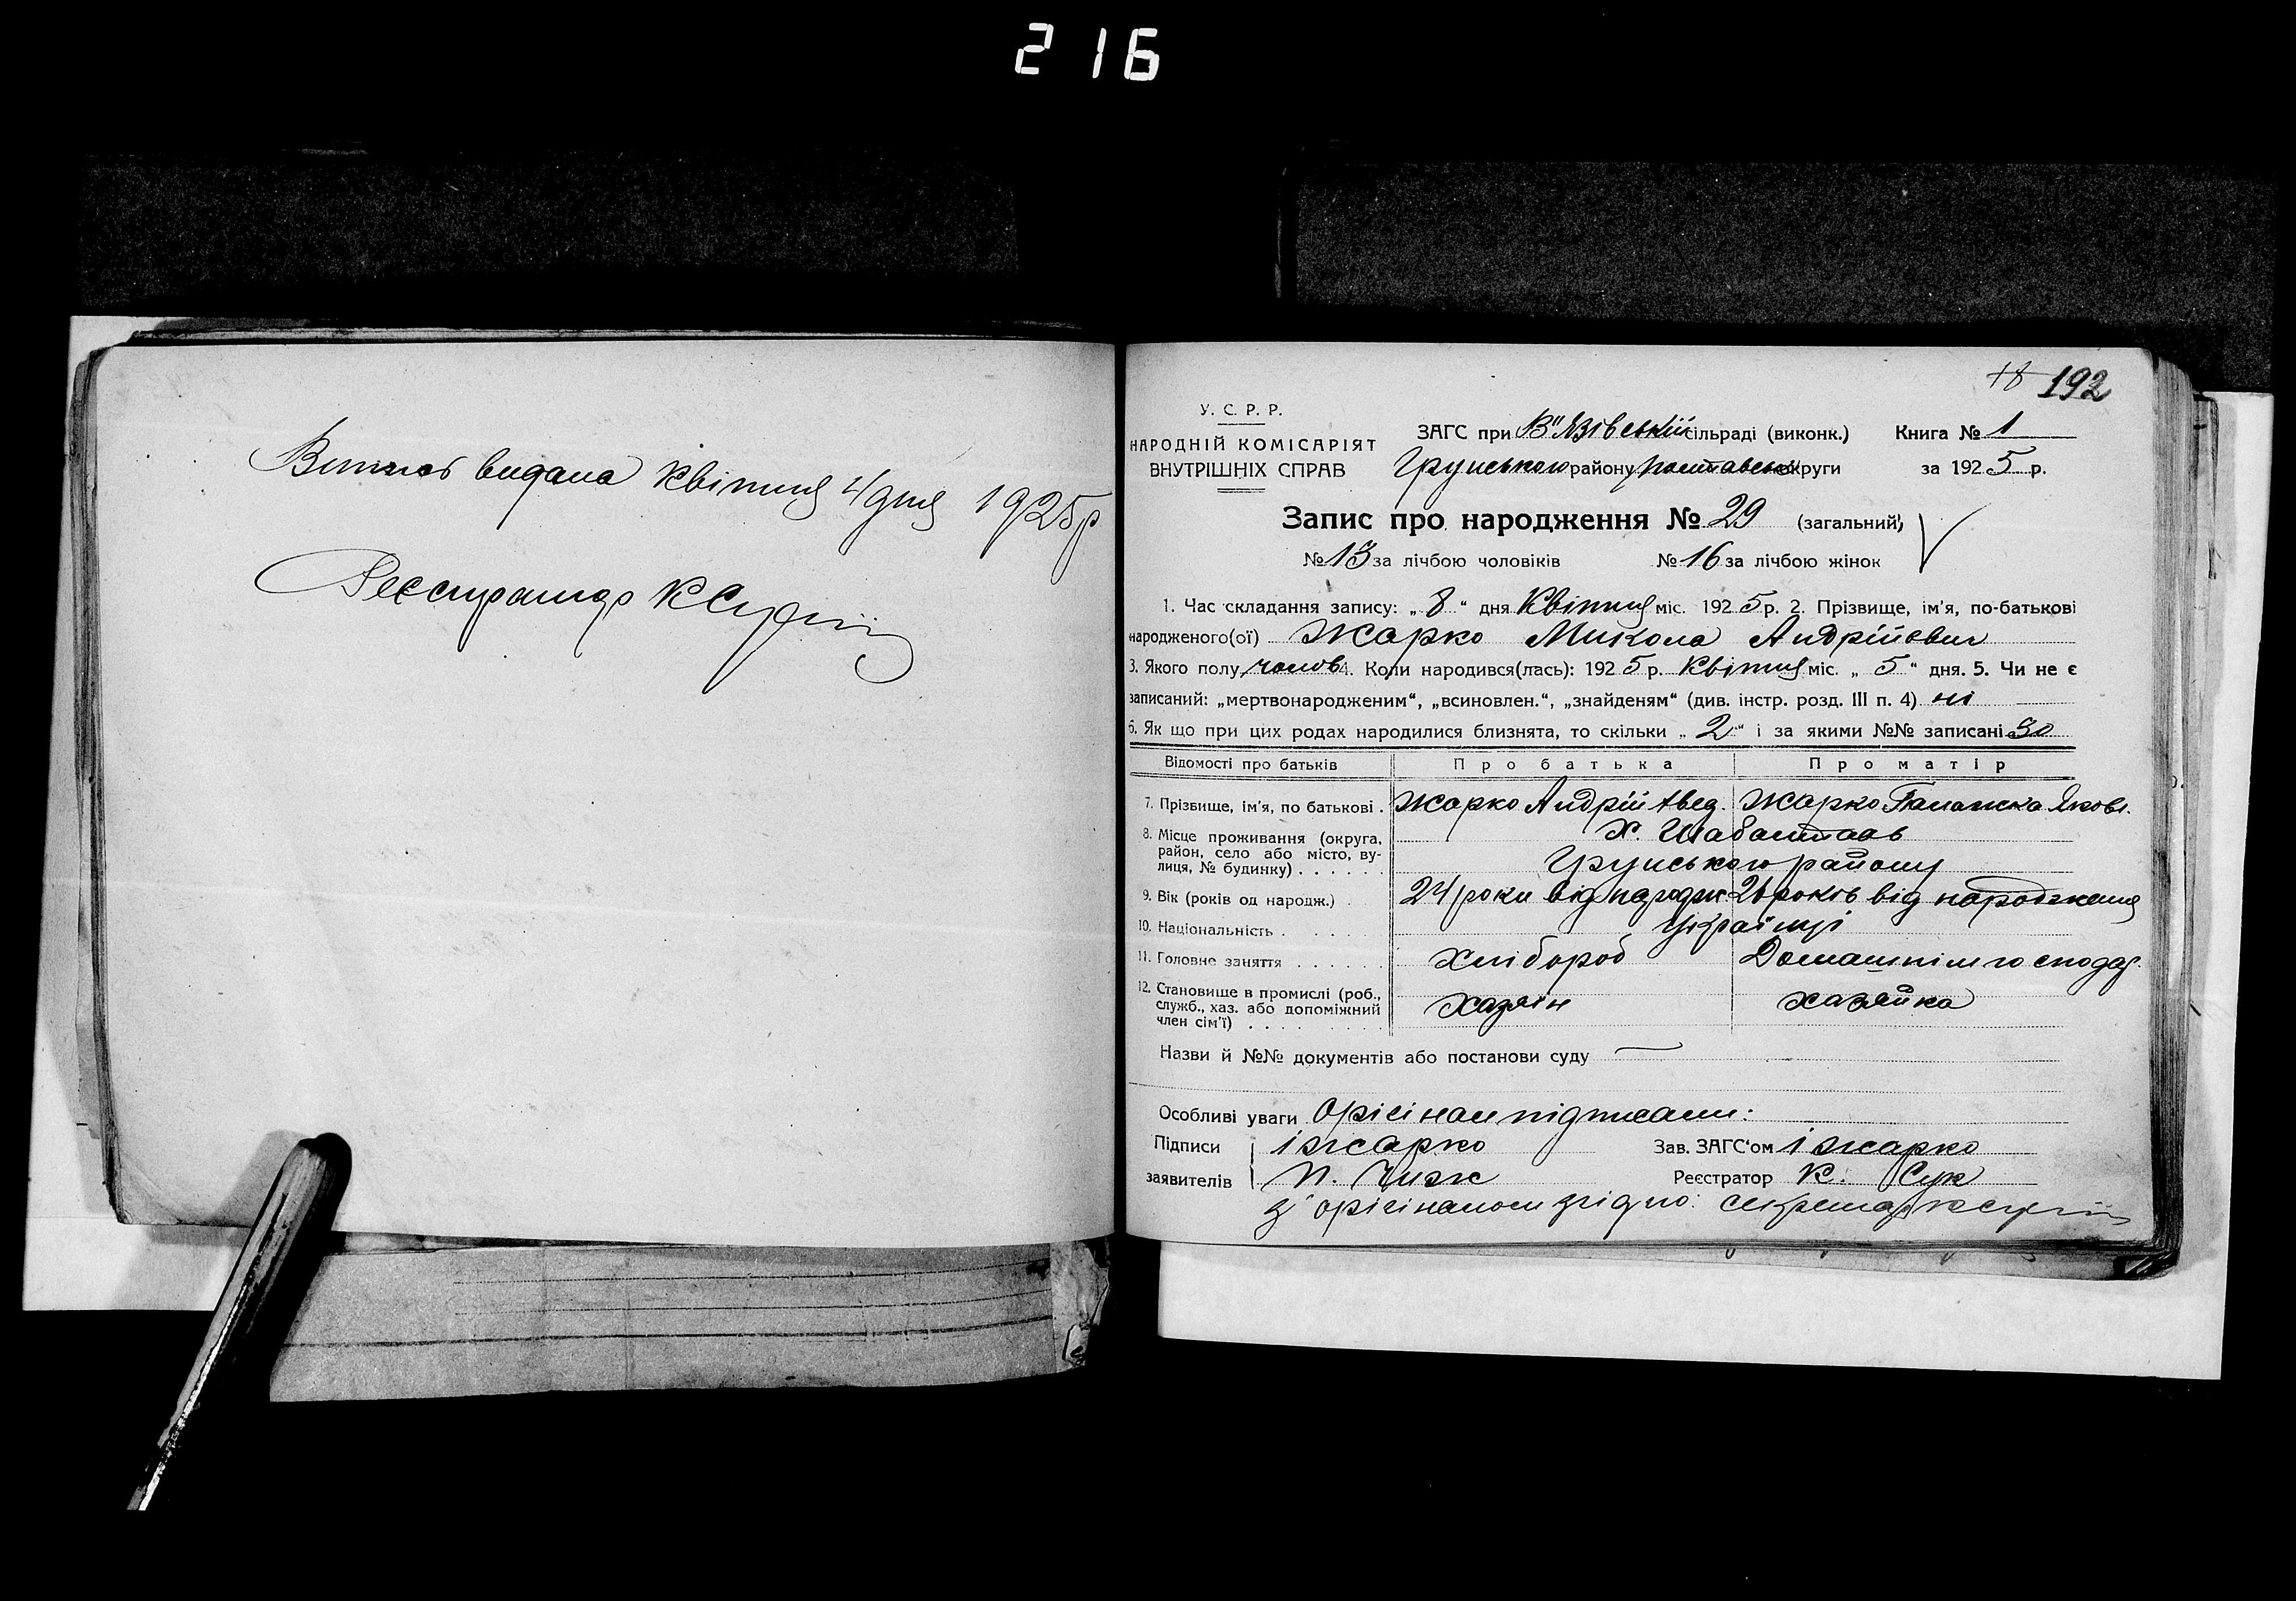 216
Випись видана Квітня 4 дня 1925 р
Реєстратор К Сук
18 192
У. С. Р. Р.
НАРОДНІЙ КОМІСАРІЯТ
ВНУТРІШНІХ СПРАВ
ЗАГС при В"язівській сільраді (виконк.) Книга № 1
Грунського району Полтавської округи за 1925 р.
Запис про народження № 29 (загальний)
№ 13 за лічбою чоловіків № 16 за лічбою жінок
1. Час складання запису: „8“ дня Квітня міс. 1925 р. 2. Прізвище, ім'я, по-батькові
народженого(ої) Жарко Микола Андрійович
3. Якого полу чолов. 4. Коли народився(лась): 1925 р. Квітня міс. „5“ дня. 5. Чи не є
записаний: „мертвонародженим“, „всиновлен.“, „знайденям“ (див. інстр. розд. III п. 4) ні
6. Як що при цих родах народилися близнята, то скільки „2“ і за якими №№ записані 30
Відомості про батьків Про батька Про матір
7. Прізвище, ім'я, по батькові . Жарко Андрій Авед. Жарко Палажка Яковл.
8. Місце проживання (округа, район, село або місто, вулиця, № будинку) . . . . . . Х.
Грунського району
9. Вік (років од народж.) . 24 роки від народж. 26 років від народження
10. Національність . . . . . Українці
11. Головне заняття . . . . . . Хлібороб Домашнім господар.
12. Становище в промислі (роб., служб., хаз. або допоміжний член сім'ї) . . . . . . . . Хазяін хазяйка
Назви й №№ документів або постанови суду
Особливі уваги Орігінал підписали:
Підписи І Жарко Зав. ЗАГС'ом І Жарко
заявителів П. Чиж Реєстратор К. Сук
З орігіналом згідно: секретар К Сук